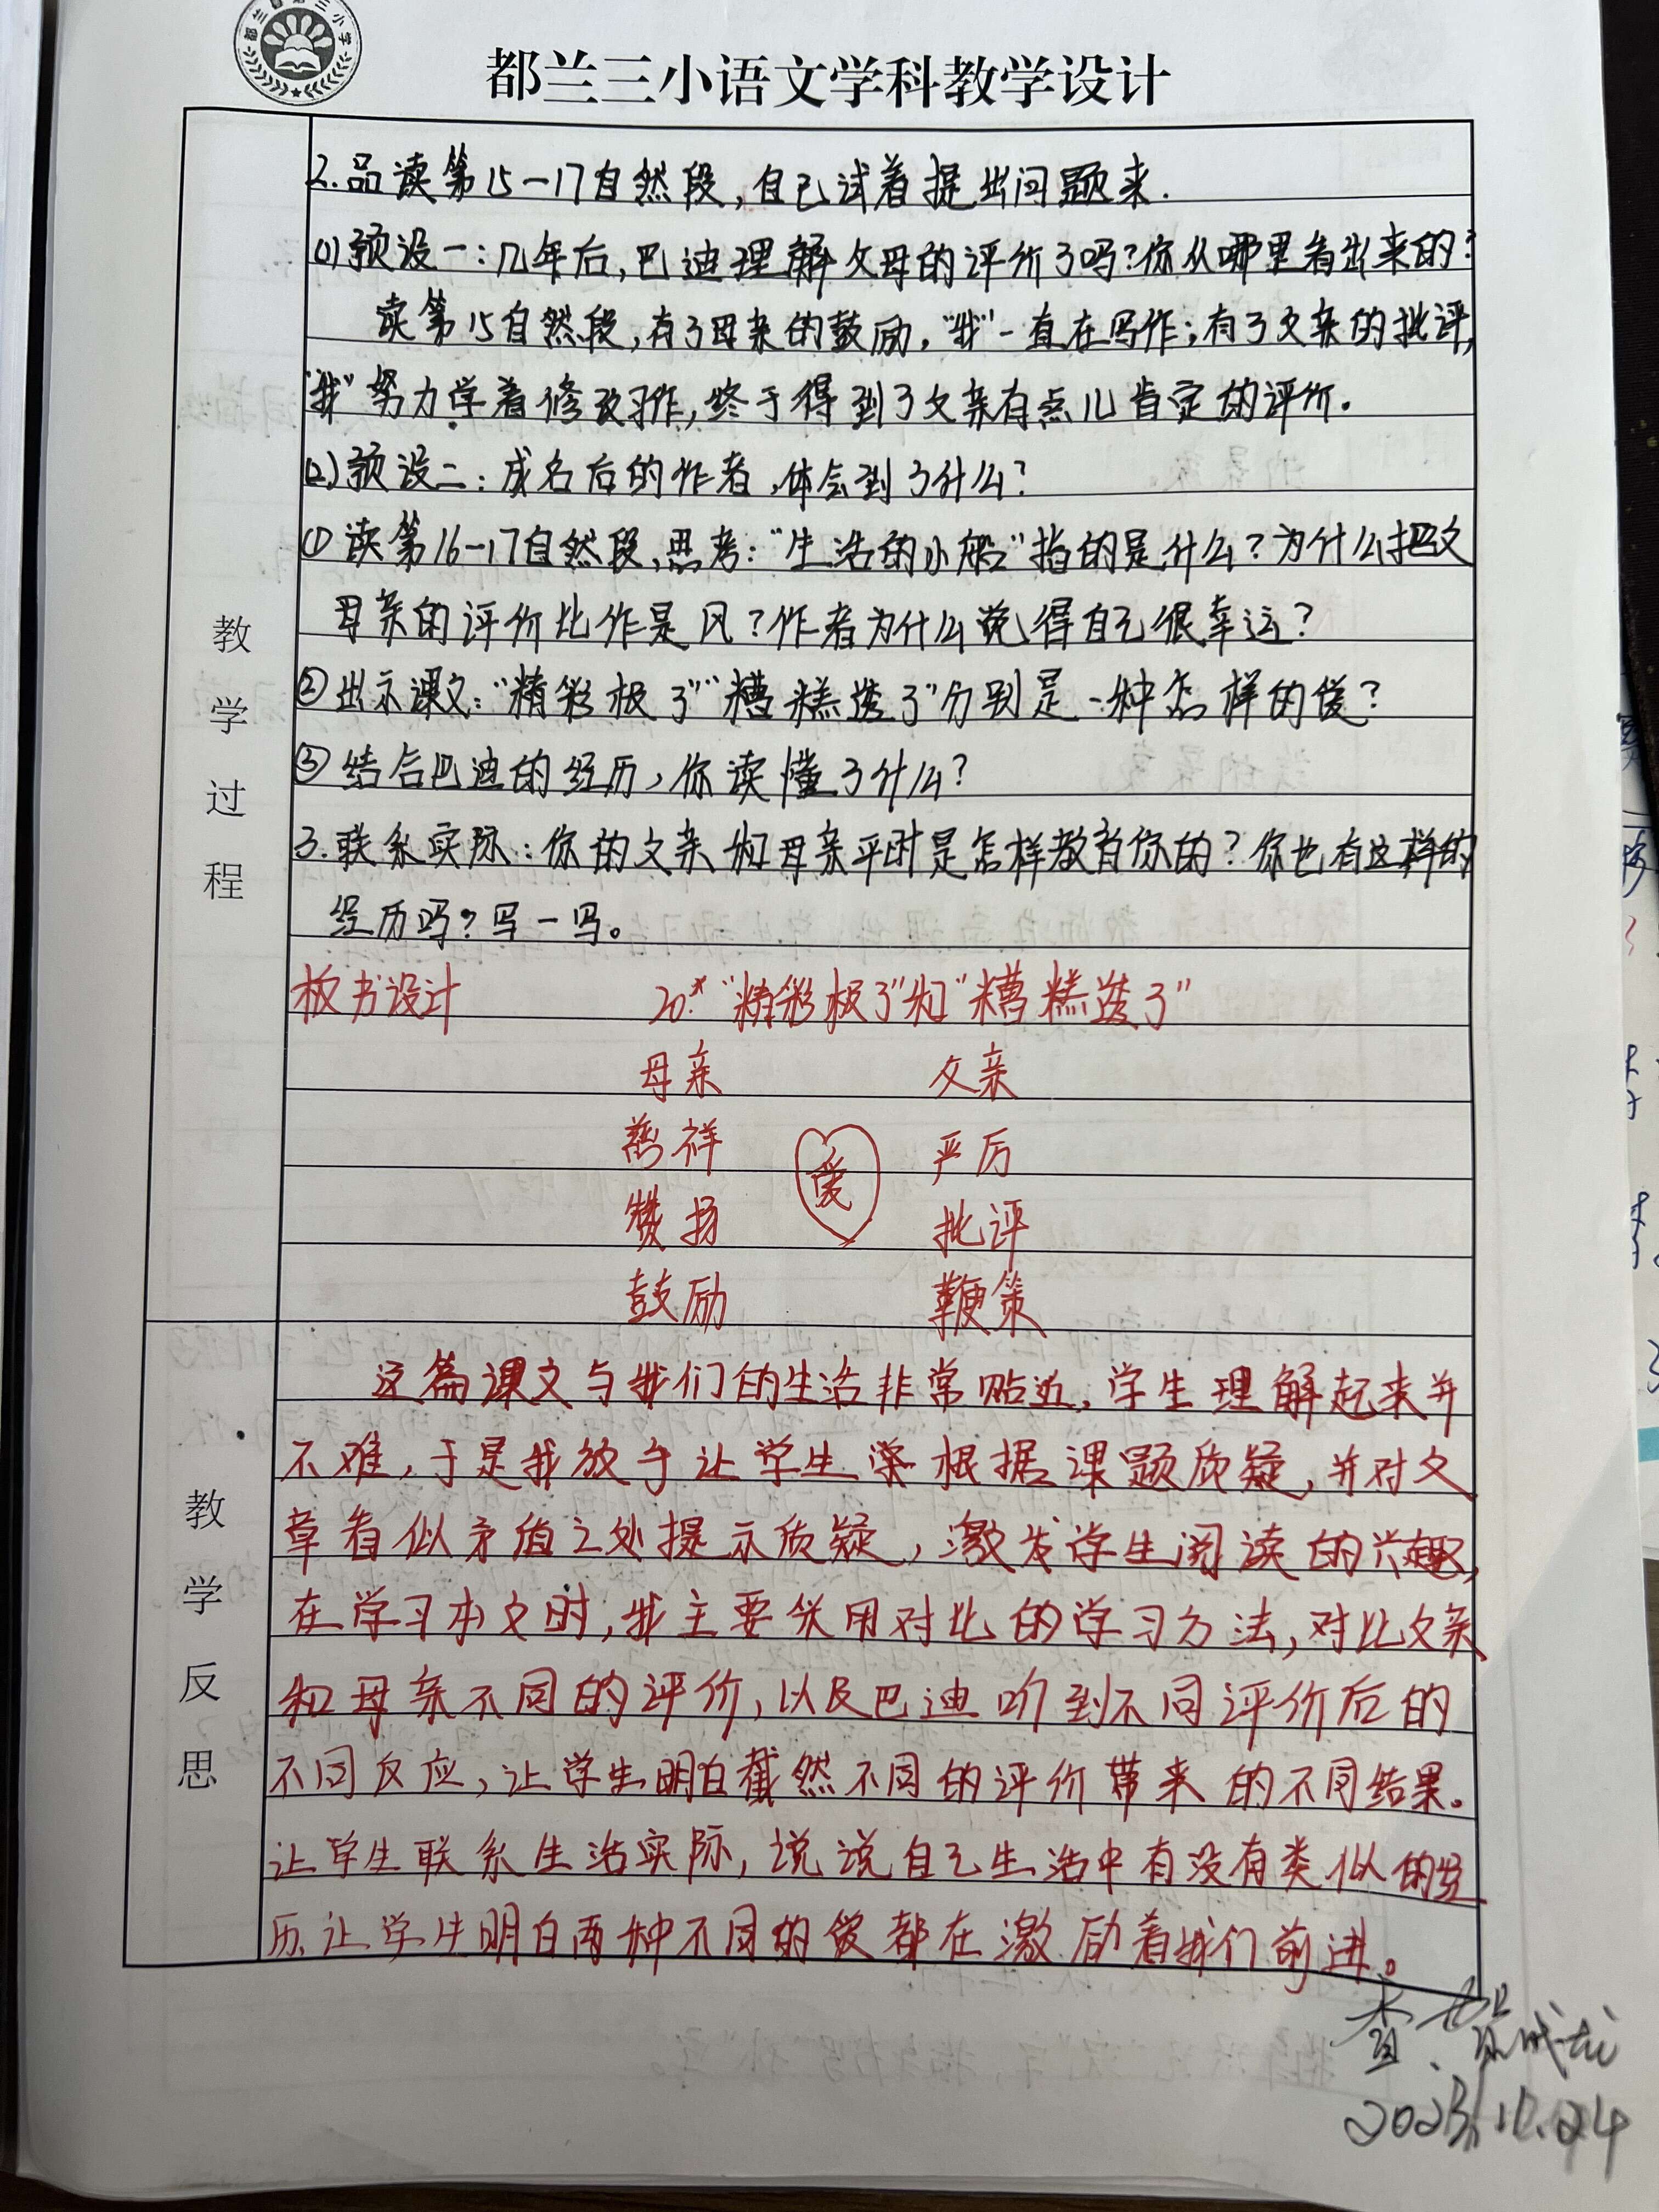 都兰三小语文学科教学设计
2.品读第15-17自然段,自己试着提出问题来.
(1)预设一:几年后,巴迪理解父母的评价了吗?你从哪里看出来的?
读第15自然段,有了母亲的鼓励,"我"一直在写作;有了父亲的批评,
"我"努力学着修改习作,终于得到了父亲有点儿肯定的评价.
(2)预设二:成名后的作者,体会到了什么?
①读第16-17自然段,思考:"生活的小船"指的是什么?为什么把父
母亲的评价比作是风?作者为什么说得自己很幸运?
②出示课文:"精彩极了""糟糕透了"分别是一种怎样的爱?
③结合巴迪的经历,你读懂了什么?
3.联系实际:你的父亲和母亲平时是怎样教育你的?你也有这样的
经历吗?写一写。
教学过程
板书设计 20.*"精彩极了"和"糟糕透了"
母亲 父亲
慈祥 爱 严厉
赞扬 批评
鼓励 鞭策
这篇课文与我们的生活非常贴近,学生理解起来并
不难,于是我放手让学生 根据课题质疑,并对文
章看似矛盾之处提示质疑,激发学生阅读的兴趣,
在学习本文时,我主要采用对比的学习方法,对比父亲
和母亲不同的评价,以及巴迪听到不同评价后的
不同反应,让学生明白截然不同的评价带来的不同结果。
让学生联系生活实际,说说自己生活中有没有类似的经
历,让学生明白两种不同的爱都在激励着我们前进。
教学反思
查